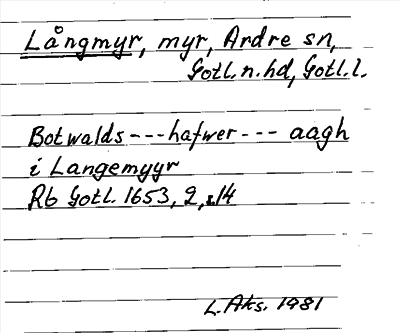 Långmyr, myr, Ardre sn,
Gotl. n. hd, Gotl. l.
Botwalds --- hafwer --- aagh
i Langemyyr
Rb Gotl. 1653, 2, s. 14
L. Aks. 1981